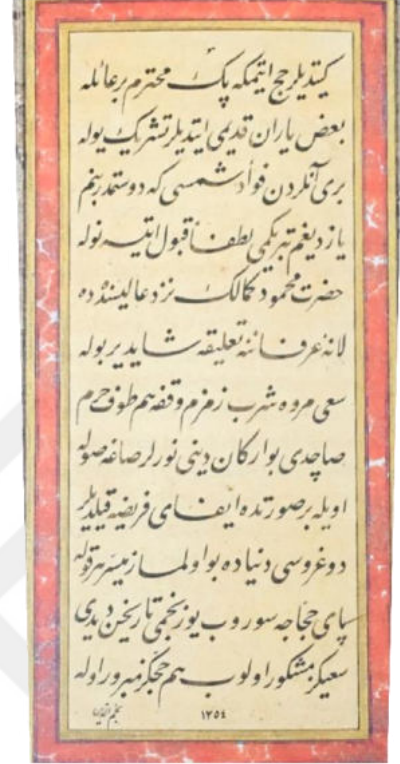 كيتديلر حج ايتمكه پك محترم بر عائله
بعض ياران قديمى ايتديلر تشريك يوله
برى آنلردن فوأد شمسى كه دوستمدر بنم
يازديغم تبريكمى لطفاً قبول ايتسه نوله
حضرت محمود كمالك نزد عاليسنده ده
لانهٔ عرفاننه تعليقه شايددر بوله
سعى مروه شرب زمزم وقفه هم طوف حرم
صاچدى بو اركان دينى نورلر صاغه صوله
اويله بر صورتده ايفاى فريضه قيلديلر
دوغروسى دنياده بو اولماز ميسر هر قوله
پاى حجاجه سوروب يوز نجمى تاريخن ديدى
سعيكز مشكور اولوب هم حجكز مبرور اوله
١٣٥٤
نجم الدين